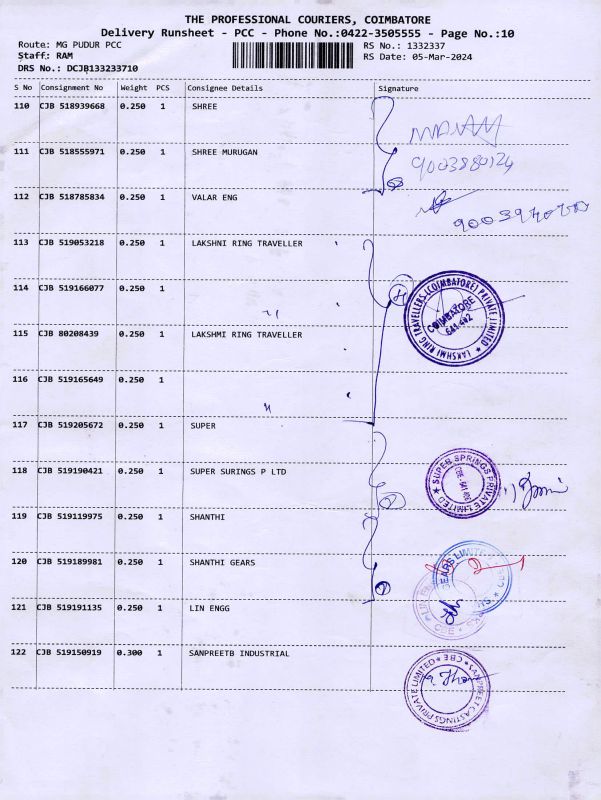 THE PROFESSIONAL COURIERS, COIMBATORE
Delivery Runsheet - PCC - Phone No.:0422-3505555 - Page No.:10
Route: MG PUDUR PCC RS No.: 1332337
Staff: RAM RS Date: 05-Mar-2024
DRS No.: DCJB133233710
S No Consignment No Weight PCS Consignee Details Signature
110 CJB 518939668 0.250 1 SHREE
111 CJB 518555971 0.250 1 SHREE MURUGAN
112 CJB 518785834 0.250 1 VALAR ENG
113 CJB 519053218 0.250 1 LAKSHNI RING TRAVELLER
114 CJB 519166077 0.250 1
LAKSHMI RING TRAVELLERS (COIMBATORE) PRIVATE LIMITED
COIMBATORE
641 402
115 CJB 80208439 0.250 1 LAKSHMI RING TRAVELLER
116 CJB 519165649 0.250 1
117 CJB 519205672 0.250 1 SUPER
118 CJB 519190421 0.250 1 SUPER SURINGS P LTD
SUPER SPRINGS PRIVATE LIMITED
119 CJB 519119975 0.250 1 SHANTHI
120 CJB 519189981 0.250 1 SHANTHI GEARS
GEARS LIMITED
121 CJB 519191135 0.250 1 LIN ENGG
CBE
122 CJB 519150919 0.300 1 SANPREETB INDUSTRIAL
SANPREET CASTINGS PRIVATE LIMITED CBE